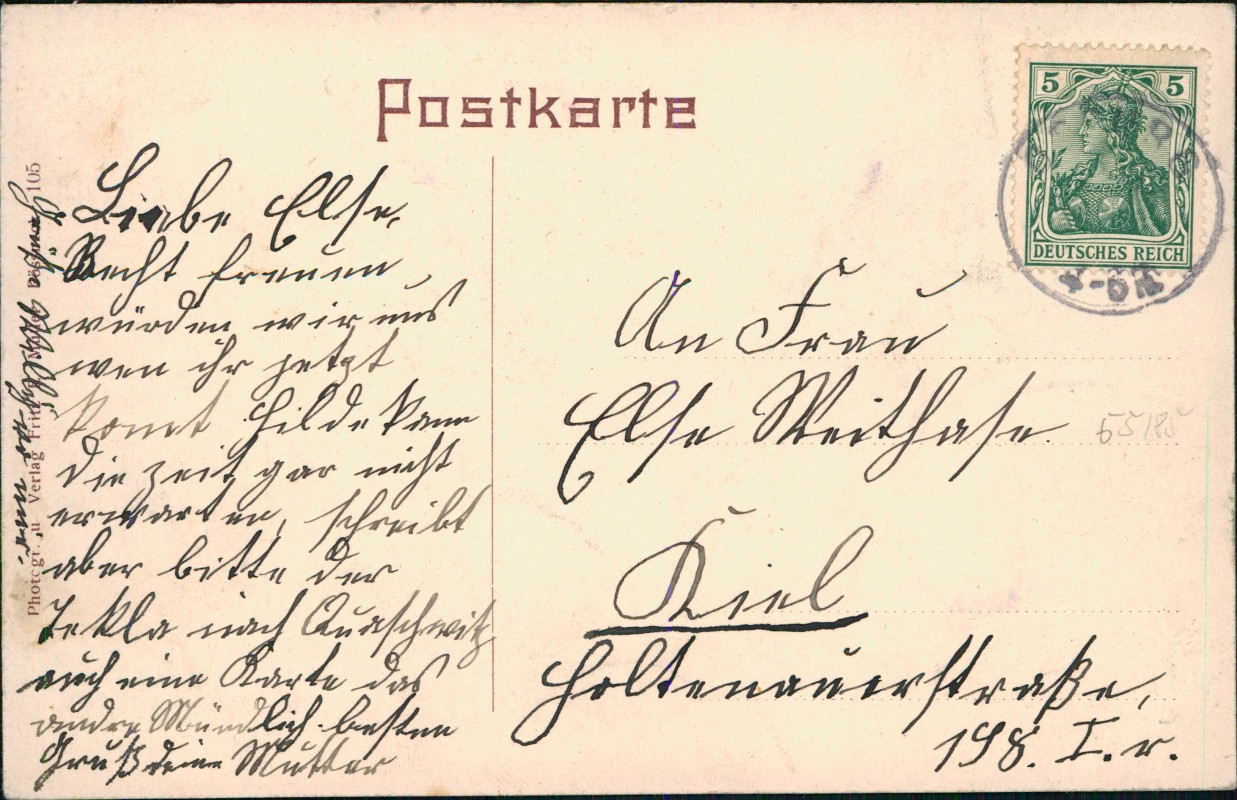 Postkarte
Liebe Else,
Recht freuen
würden wir uns
wen ihr jetzt
komt Hilde kann
die zeit gar nicht
erwarten, schreibt
aber bitte der
Tekla nach Quaschwitz
auch eine Karte das
andre Mündlich. besten
Gruß deine Mutter
Photogr. u. Verlag Fritz
105
5 5
DEUTSCHES REICH
An Frau
Else Weithase
Kiel
Holtenauerstraße,
198. I. r.